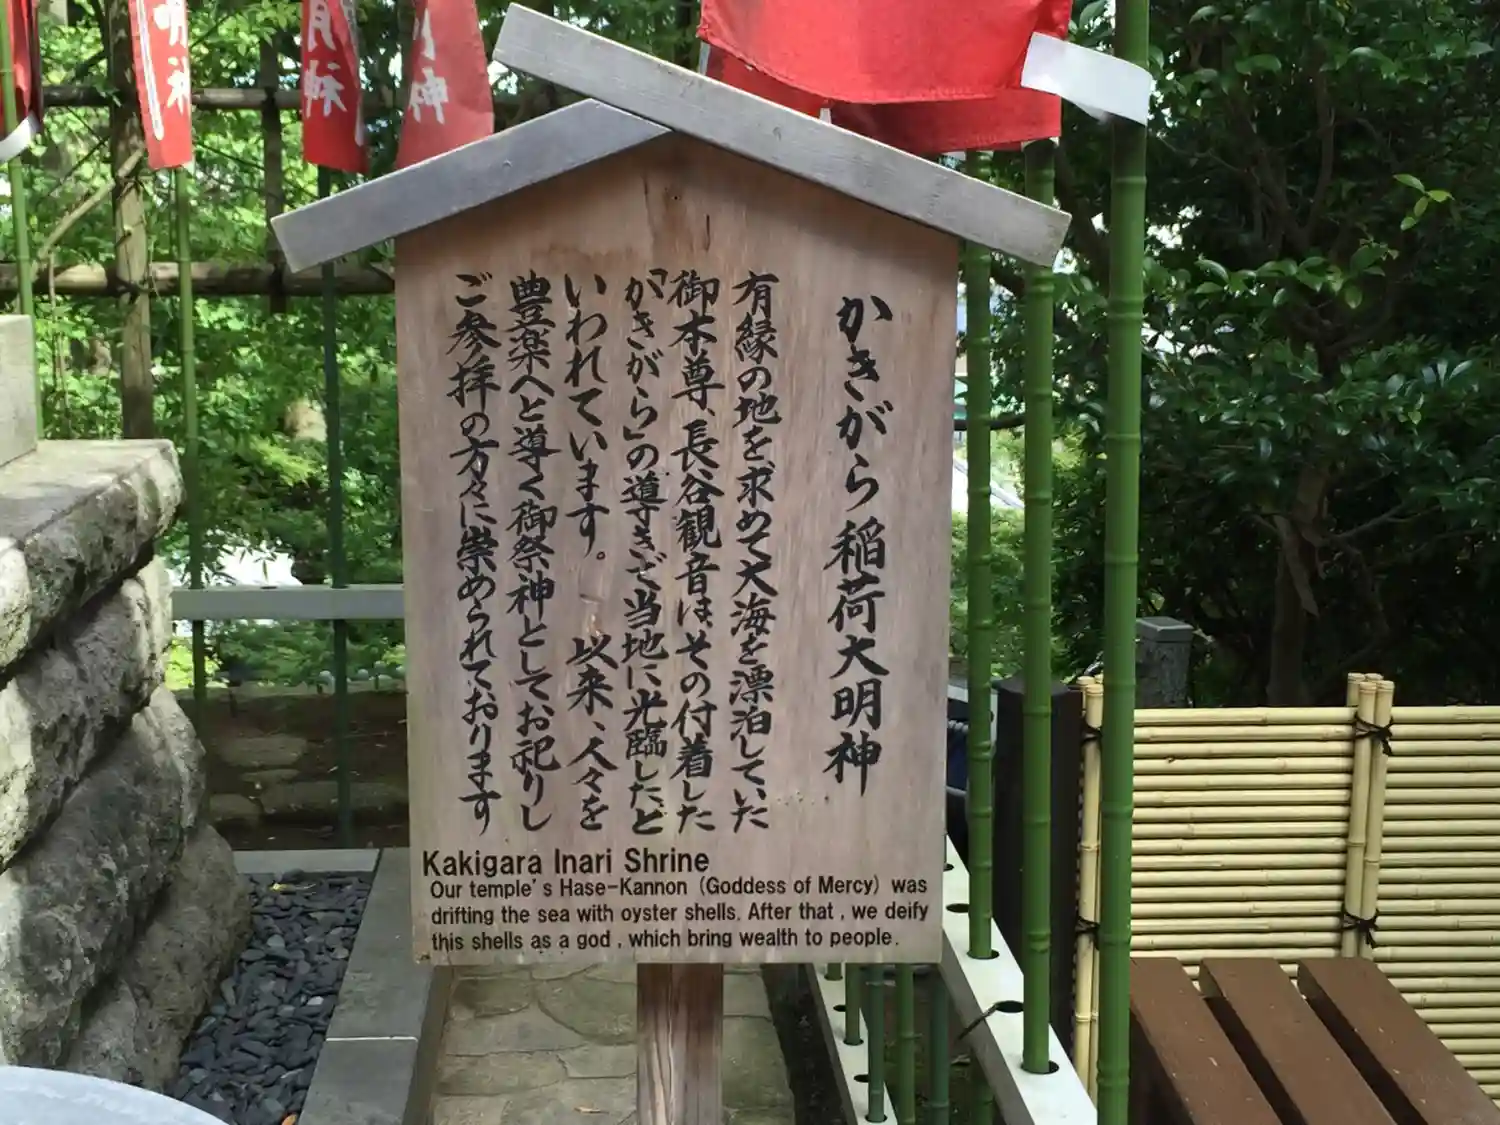 かきがら稲荷大明神
有縁の地を求めて大海を漂泊していた
御本尊、長谷観音は、その付着した
「かきがら」の導きで当地に光臨したと
いわれています。 以来、人々を
豊楽へと導く御祭神として、お祀りし
ご参拝の方々に崇められております
Kakigara Inari Shrine
Our temple's Hase-Kannon (Goddess of Mercy) was
drifting the sea with oyster shells. After that , we deify
this shells as a god , which bring wealth to people.
明神
明神
神